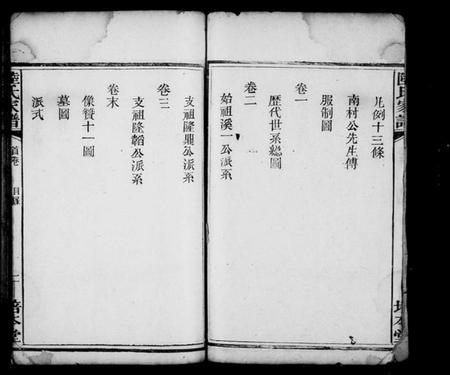 陸氏家譜
凡例十三條
南村公先生傳
服制圖
卷一
歷代世系總圖
卷二
始祖溪一公派系
培本堂
卷三
支祖隆興公派系
支祖隆韜公派系
卷末
像贊十一圖
墓圖
派式
陸氏家譜
首卷
目錄
一
培本堂